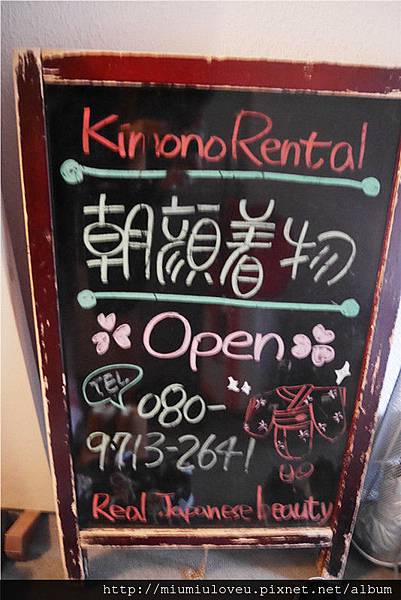 Kimono Rental
朝顔着物
Open
TEL
080-
9713-2641
Real Japanese beauty
http://miumiuloveu.pixnet.net/album